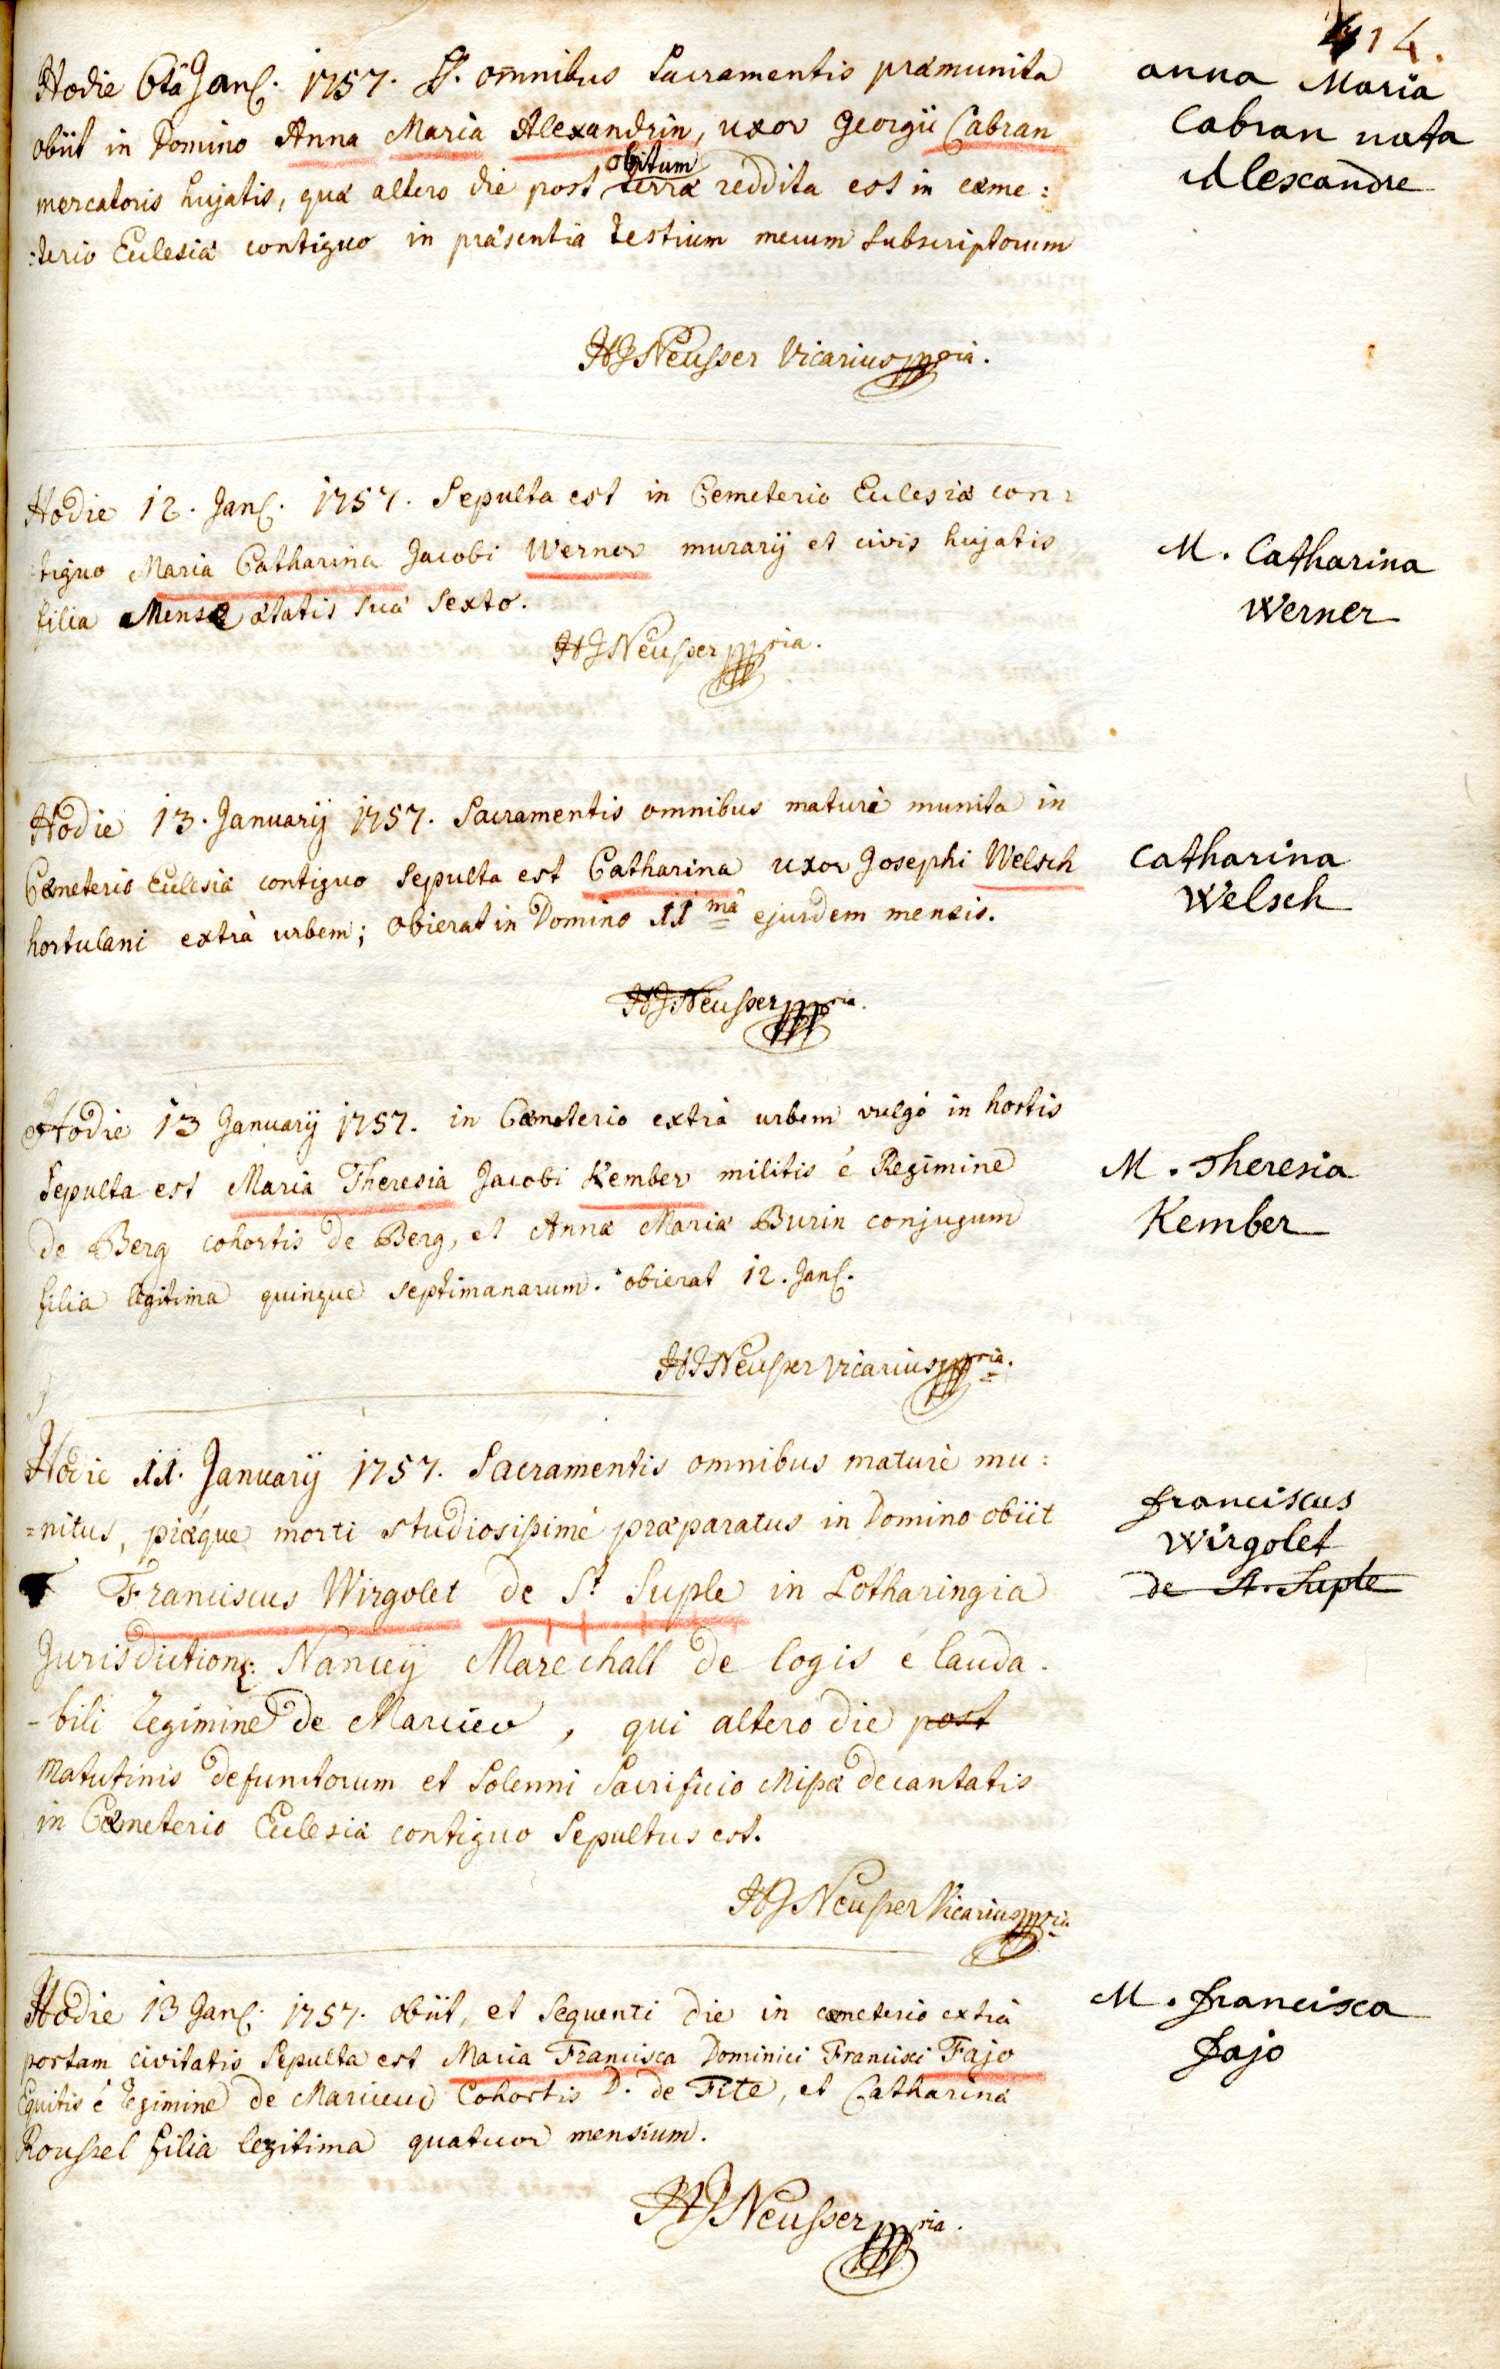 414.
Hodie 6ta Janʃ. 1757. SS. omnibus Sacramentis præmunita
obiit in Domino Anna Maria Alexandrin, uxor Georgii Cabran
obitum
mercatoris hujatis, quæ altero die post terræ reddita est in cæme:
:terio Eclesiæ contiguo in præsentia testium mecum subscriptorum
HJ Neusser Vicarius mpria.
anna Maria
Cabran nata
Alexandre
Hodie 12. Janʃ. 1757. Sepulta est in Cemeterio Eclesiæ con:
:tiguo Maria Catharina Jacobi Werner murarij et civis hujatis
filia Mense ætatis suæ Sexto.
HJ Neusser mpria.
M. Catharina
Werner
Hodie 13. Januarij 1757. Sacramentis omnibus maturè munita in
Cæmeterio Eclesiæ contiguo Sepulta est Catharina uxor Josephi Welsch
hortulani extrà urbem; obierat in Domino 11mâ ejusdem mensis.
HJ Neusser mpria.
Catharina
Welsch
Hodie 13 Januarij 1757. in Cæmeterio extrà urbem vulgò in hortis
Sepulta est Maria Theresia Jacobi Kember militis è Regimine
de Berg cohortis de Berg, et Annæ Mariæ Burin conjugum
filia legitima quinque septimanarum. obierat 12. Janʃ.
HJ Neusser vicarius mpria.
M. Theresia
Kember
Hodie 11. Januarij 1757. Sacramentis omnibus maturè mu:
=nitus, piéque morti studiosissimè præparatus in Domino obiit
Franciscus Wirgolet de St. Suple in Lotharingia
Jurisdictione Nancey Marechall de logis è lauda.
-bili regimine de Marcieu, qui altero die post
Matutinis defunctorum et Solenni Sacrificio Missæ decantatis
in Cæmeterio Eclesiæ contiguo Sepultus est.
HJ Neusser Vicarius mpria
franciscus
Wirgolet
de St. Suple
Hodie 13 Janʃ. 1757. obiit, et sequenti die in cæmeterio extrà
portam civitatis Sepulta est Maria Francisca Dominici Francisci Fajo
Equitis è regimine de Marcieu Cohortis D. de Fite, et Catharinæ
Roussel filia legitima quatuor mensium.
HJ Neusser mpria.
M. francisca
fajo